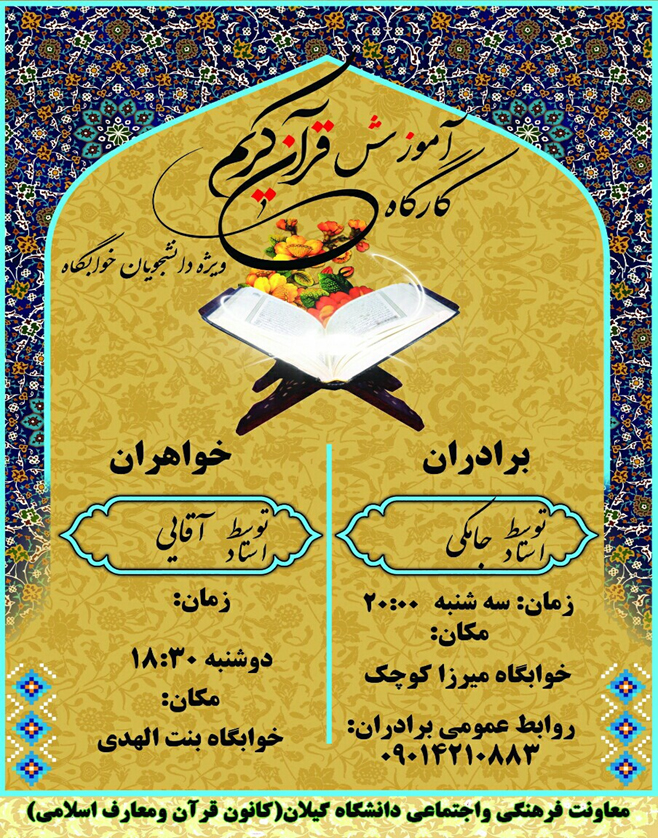 کارگاه آموزش قرآن کریم
ویژه دانشجویان خوابگاه
برادران
توسط استاد جامکی
زمان: سه شنبه ۲۰:۰۰
مکان:
خوابگاه میرزا کوچک
روابط عمومی برادران:
۰۹۰۱۴۲۱۰۸۸۳
خواهران
توسط استاد آقایی
زمان:
دوشنبه ۱۸:۳۰
مکان:
خوابگاه بنت الهدی
معاونت فرهنگی واجتماعی دانشگاه گیلان(کانون قرآن ومعارف اسلامی)